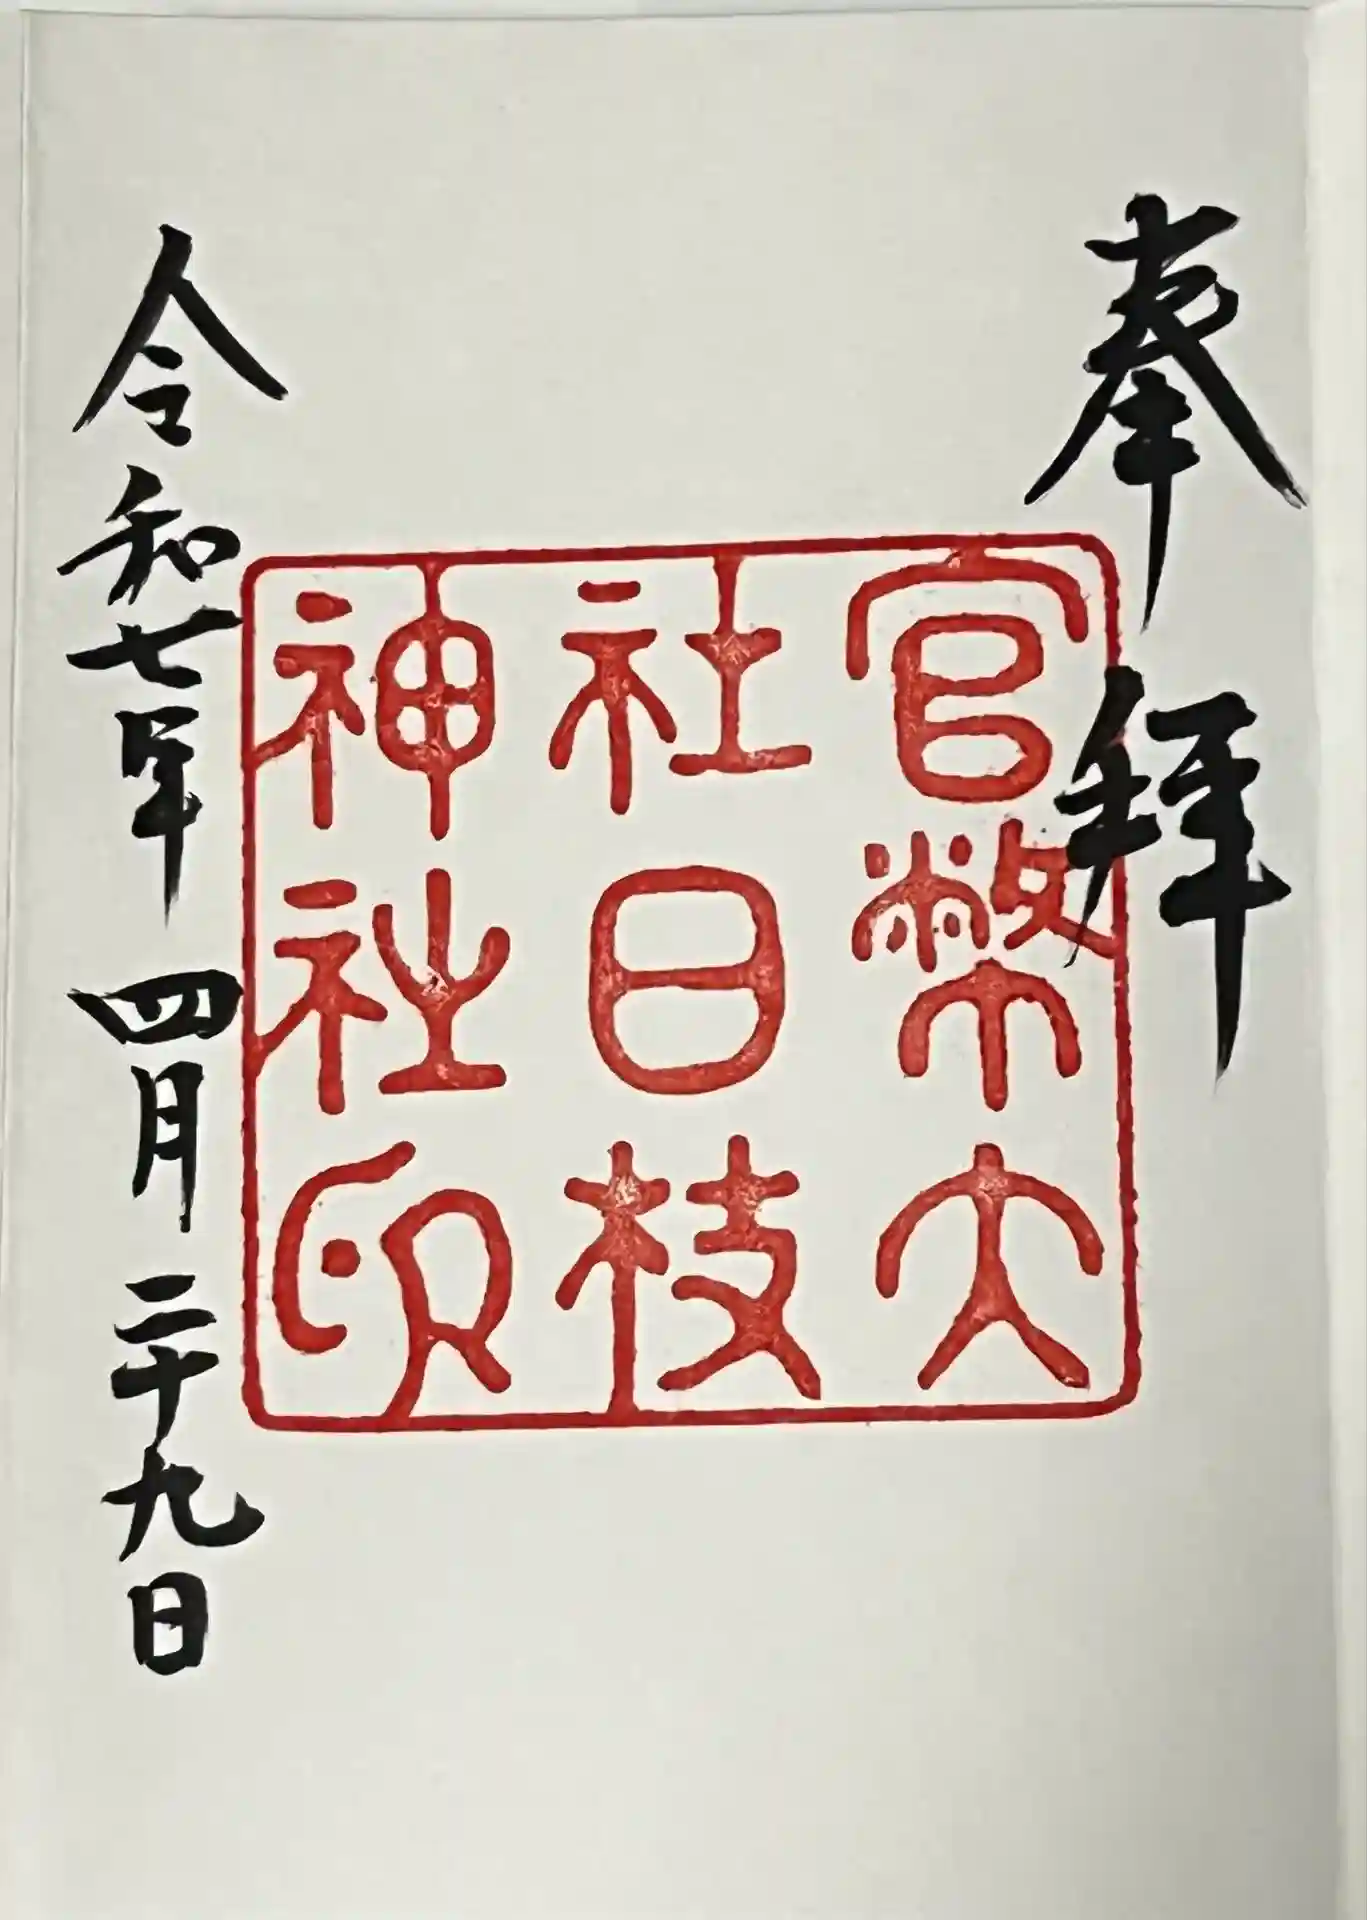 奉拝
官幣大
社日枝
神社印
令和七年四月二十九日